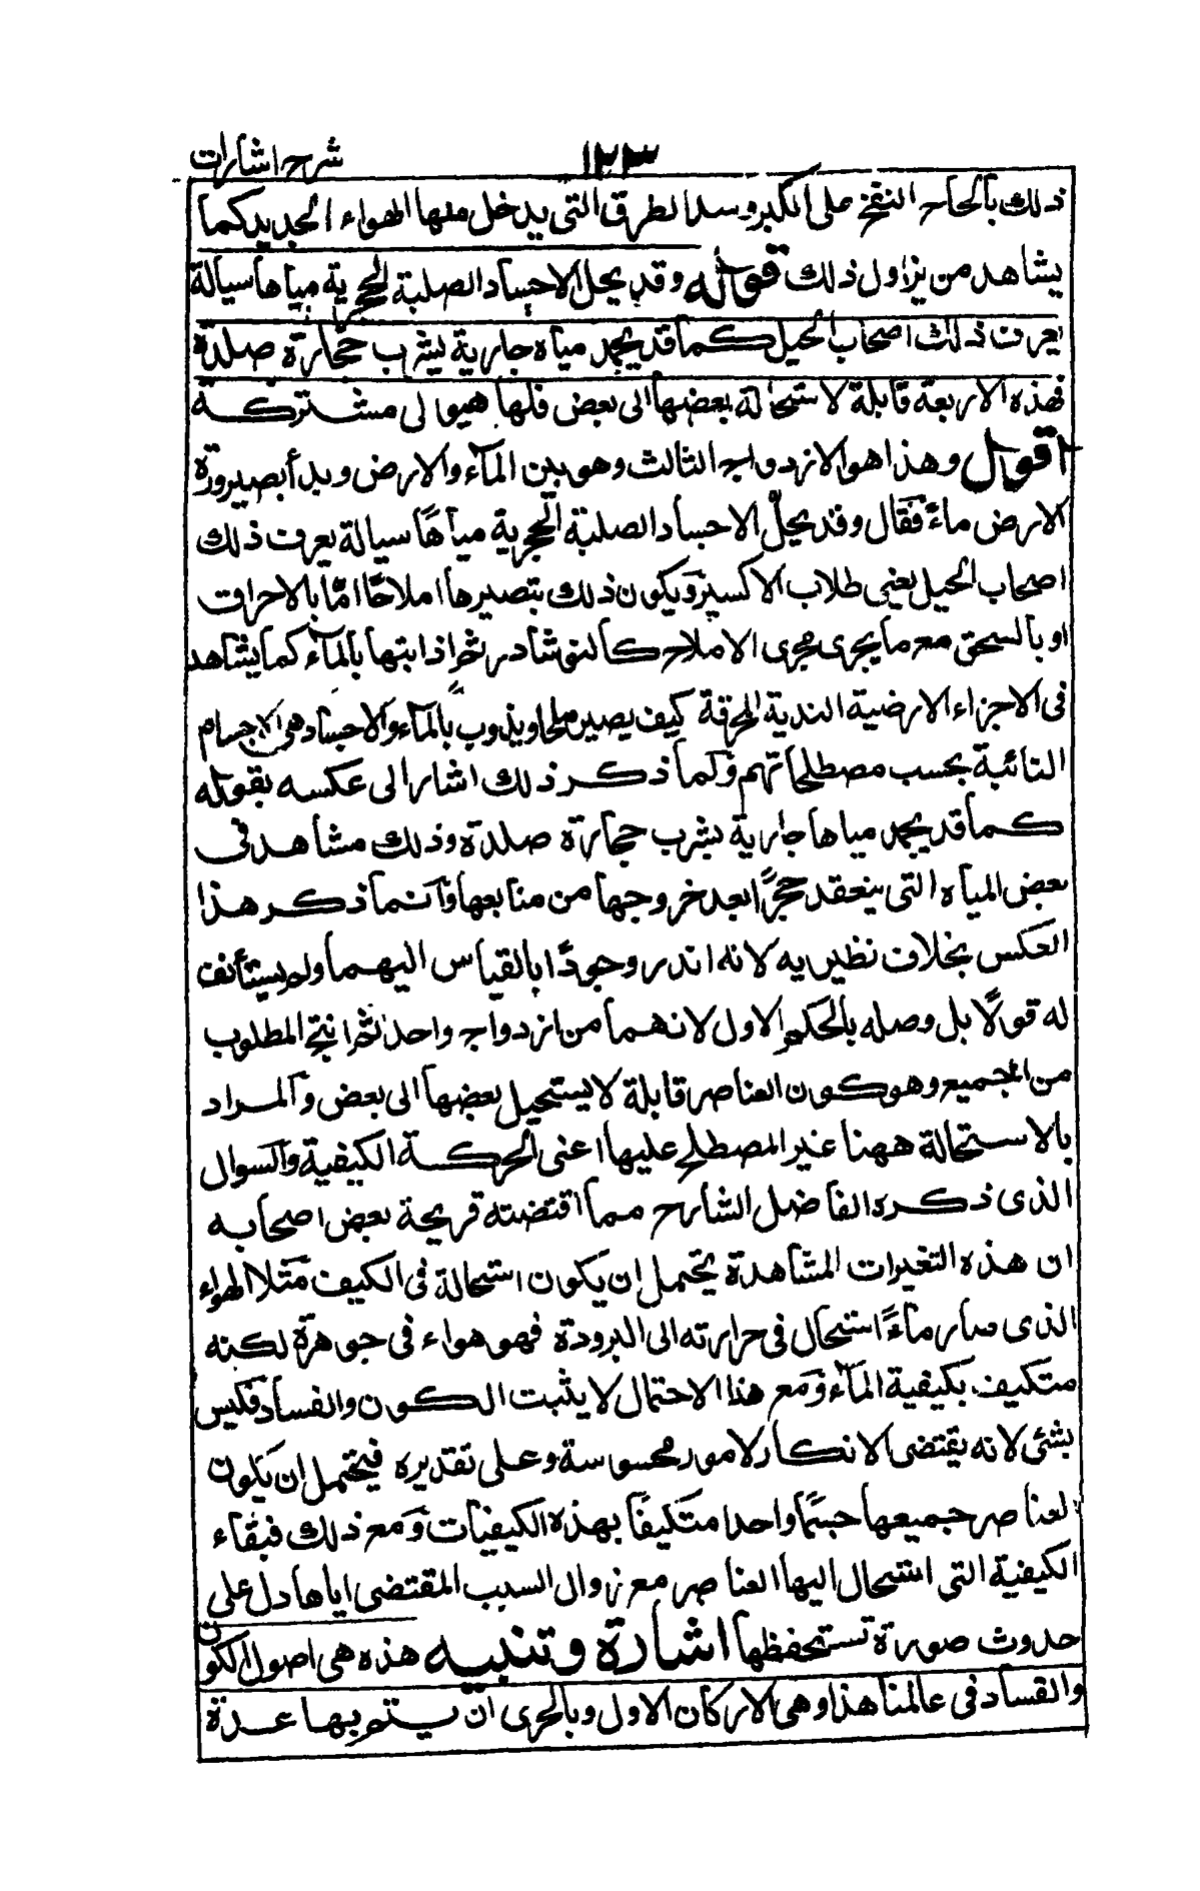 شرح اشارات
١٢٣
ذلك بالحاح النفخ على الكير وسد الطرق التى يدخل منها الهواء الجديد كما
يشاهد من يزاول ذلك قوله وقد يحل الاجساد الصلبة الحجرية مياها سيالة
يعرف ذلك اصحاب الحيل كما قد يجمد مياه جارية يشرب حجارة صلدة
فهذه الاربعة قابلة لاستحالة بعضها الى بعض فلها هيولى مشتركة
اقول وهذا هو الازدواج الثالث وهو بين الماء والارض وبدأ بصيرورة
الارض ماءً فقال وقد يحلّ الاجساد الصلبة الحجرية مياهًا سيالة يعرف ذلك
اصحاب الحيل يعنى طلاب الاكسير ويكون ذلك بتصيرها املاحًا امّا بالاحراق
او بالسحق مع ما يجرى مجرى الاملاح كالنوشادر ثم اذابتها بالماء كما يشاهد
فى الاجزاء الارضية الندية المحرقة كيف يصير ملحا ويذوب بالماء والاجساد هى الاجسام
الذائبة بحسب مصطلحاتهم وكما ذكر ذلك اشار الى عكسه بقوله
كما قد يجمد مياها جارية يشرب حجارة صلدة وذلك مشاهد فى
بعض المياه التى ينعقد حجرًا بعد خروجها من منابعها وانما ذكر هذا
العكس بخلاف نظيريه لانه اندر وجودًا بالقياس اليهما ولم يستأنف
له قولًا بل وصله بالحكم الاول لانهما من ازدواج واحد ثم انتج المطلوب
من الجميع وهو كون العناصر قابلة لا يستحيل بعضها الى بعض والمراد
بالاستحالة ههنا غير المصطلح عليها اعنى الحركة الكيفية والسوال
الذى ذكره الفاضل الشارح مما اقتضته قريحة بعض اصحابه
ان هذه التغيرات المشاهدة يحتمل ان يكون استحالة فى الكيف مثلا الهواء
الذى صار ماءً استحال فى حرارته الى البرودة فهو هواء فى جوهرة لكنه
متكيف بكيفية الماء ومع هذا الاحتمال لا يثبت الكون والفساد فليس
بشئ لانه يقتضى الانكار لامور محسوسة وعلى تقديره فيحتمل ان يكون
لعناصر جميعها جسمًا واحدا متكيفًا بهذه الكيفيات ومع ذلك فبقاء
الكيفية التى استحال اليها العناصر مع زوال السبب المقتضى اياها دل على
حدوث صورة تستحفظها اشارة وتنبيه هذه هى اصول الكون
والفساد فى عالمنا هذا وهى الاركان الاول وبالحرى ان يتم بها عدة